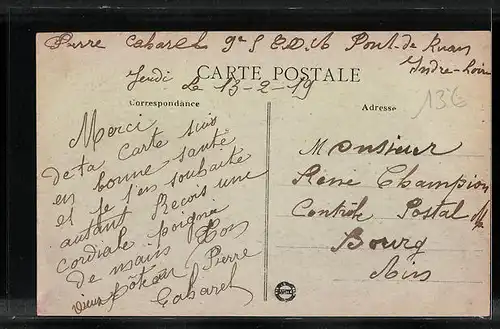 Pierre Cabaret 9e S E.O.A Pont-de Ruan
Indre-Loire
Jeudi le 13-2-19
CARTE POSTALE
Correspondance
Adresse
136
Merci
de ta carte suis
en bonne santé
et je t'en souhaite
autant Recois une
cordiale poignée
de mains Ton
vieux pôteau Pierre
Cabaret
Monsieur
René Champion
Contrôle Postal
Bourg
Ain